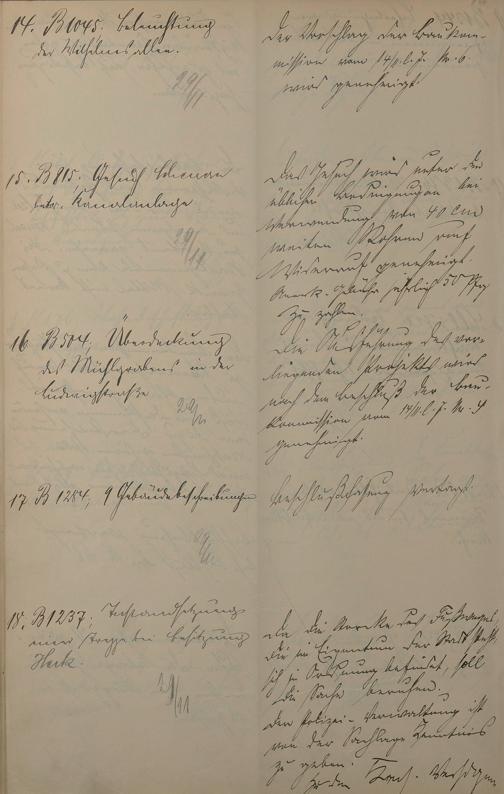 14. B1045. Beleuchtung
der Wilhelmsallee.
29/11
Der Vorschlag der Baukom-
mission vom 14/11 l. J. Nr. 6
wird genehmigt.
15. B 815, Gesuch
betr. Kanalanlage
29/11
Das Gesuch wird unter den
üblichen Bedingungen bei
Verwendung von 40 cm
weiten Rohren auf
Widerruf genehmigt.
jährlich 50 Pfg
zu zahlen.
16 B504, Überdeckung
des Mühlgrabens in der
Ludwigstraße
29/11
Die Ausführung des vor-
liegenden Projekts wird
nach dem Beschluß der Bau-
kommission vom 14/11 l. J. Nr. 4
genehmigt.
17. B 1284, 9 Gebäudebeschreibungen
29/11
Beschlußfassung vertagt.
18. B1237; Instandsetzung
einer Treppe bei Besitzung
29/11
Da die des
die im Eigentum der Stadt steht,
sich in Ordnung befindet, soll
die Sache beruhen.
Der Polizei-Verwaltung ist
von der Sachlage Kenntnis
zu geben.